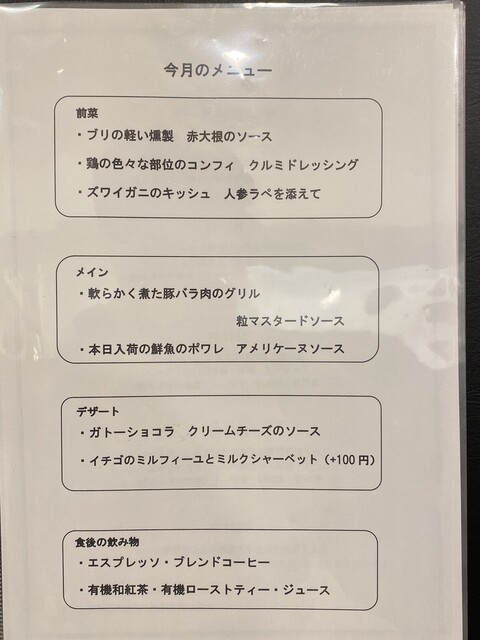 今月のメニュー
前菜
・ブリの軽い燻製　赤大根のソース
・鶏の色々な部位のコンフィ　クルミドレッシング
・ズワイガニのキッシュ　人参ラペを添えて
メイン
・軟らかく煮た豚バラ肉のグリル
粒マスタードソース
・本日入荷の鮮魚のポワレ　アメリケーヌソース
デザート
・ガトーショコラ　クリームチーズのソース
・イチゴのミルフィーユとミルクシャーベット（+100 円）
食後の飲み物
・エスプレッソ・ブレンドコーヒー
・有機和紅茶・有機ローストティー・ジュース